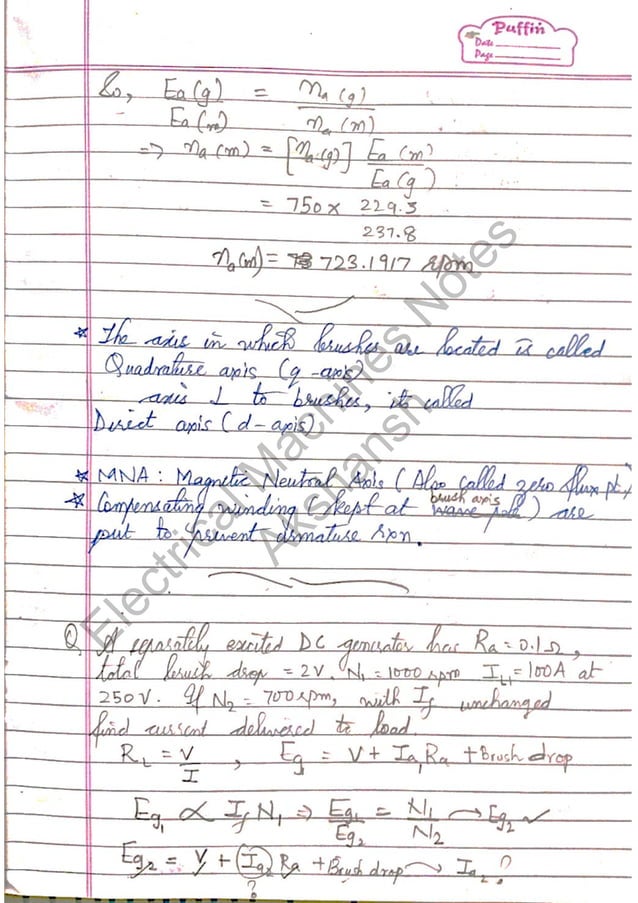 Puffin
Date
Page
So, Ea(g) / Ea(m) = na(g) / na(m)
=> na(m) = [na(g)] Ea(m) / Ea(g)
= 750 x 229.3 / 237.8
na(m) = 723.1917 rpm
* The axis in which brushes are located is called
Quadrature axis (q-axis)
axis ⊥ to brushes, its called
Direct axis (d-axis)
* MNA : Magnetic Neutral Axis (Also called zero flux pt.)
* Compensating winding (kept at brush axis) are
put to prevent armature rxn.
Q. A separately excited DC generator has Ra = 0.1Ω,
total brush drop = 2V. N1 = 1000 rpm IL1 = 100A at
250V. If N2 = 700 rpm, with If unchanged
find current delivered to load.
RL = V/I , Eg1 = V + Ia1 Ra + Brush drop
Eg1 ∝ If N1 => Eg1/Eg2 = N1/N2 → Eg2 ✓
Eg2 = V + (Ia2) Ra + Brush drop → Ia2 ?
?
Electrical Machines Notes
Akshansh